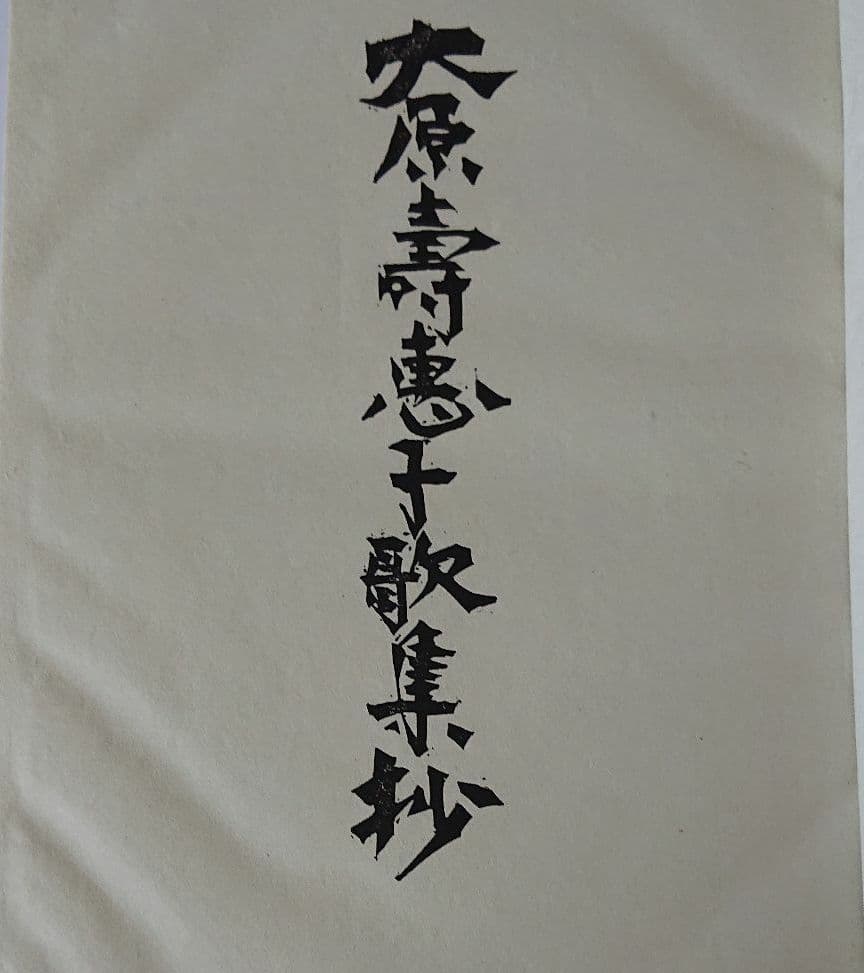 大原壽惠子歌集抄